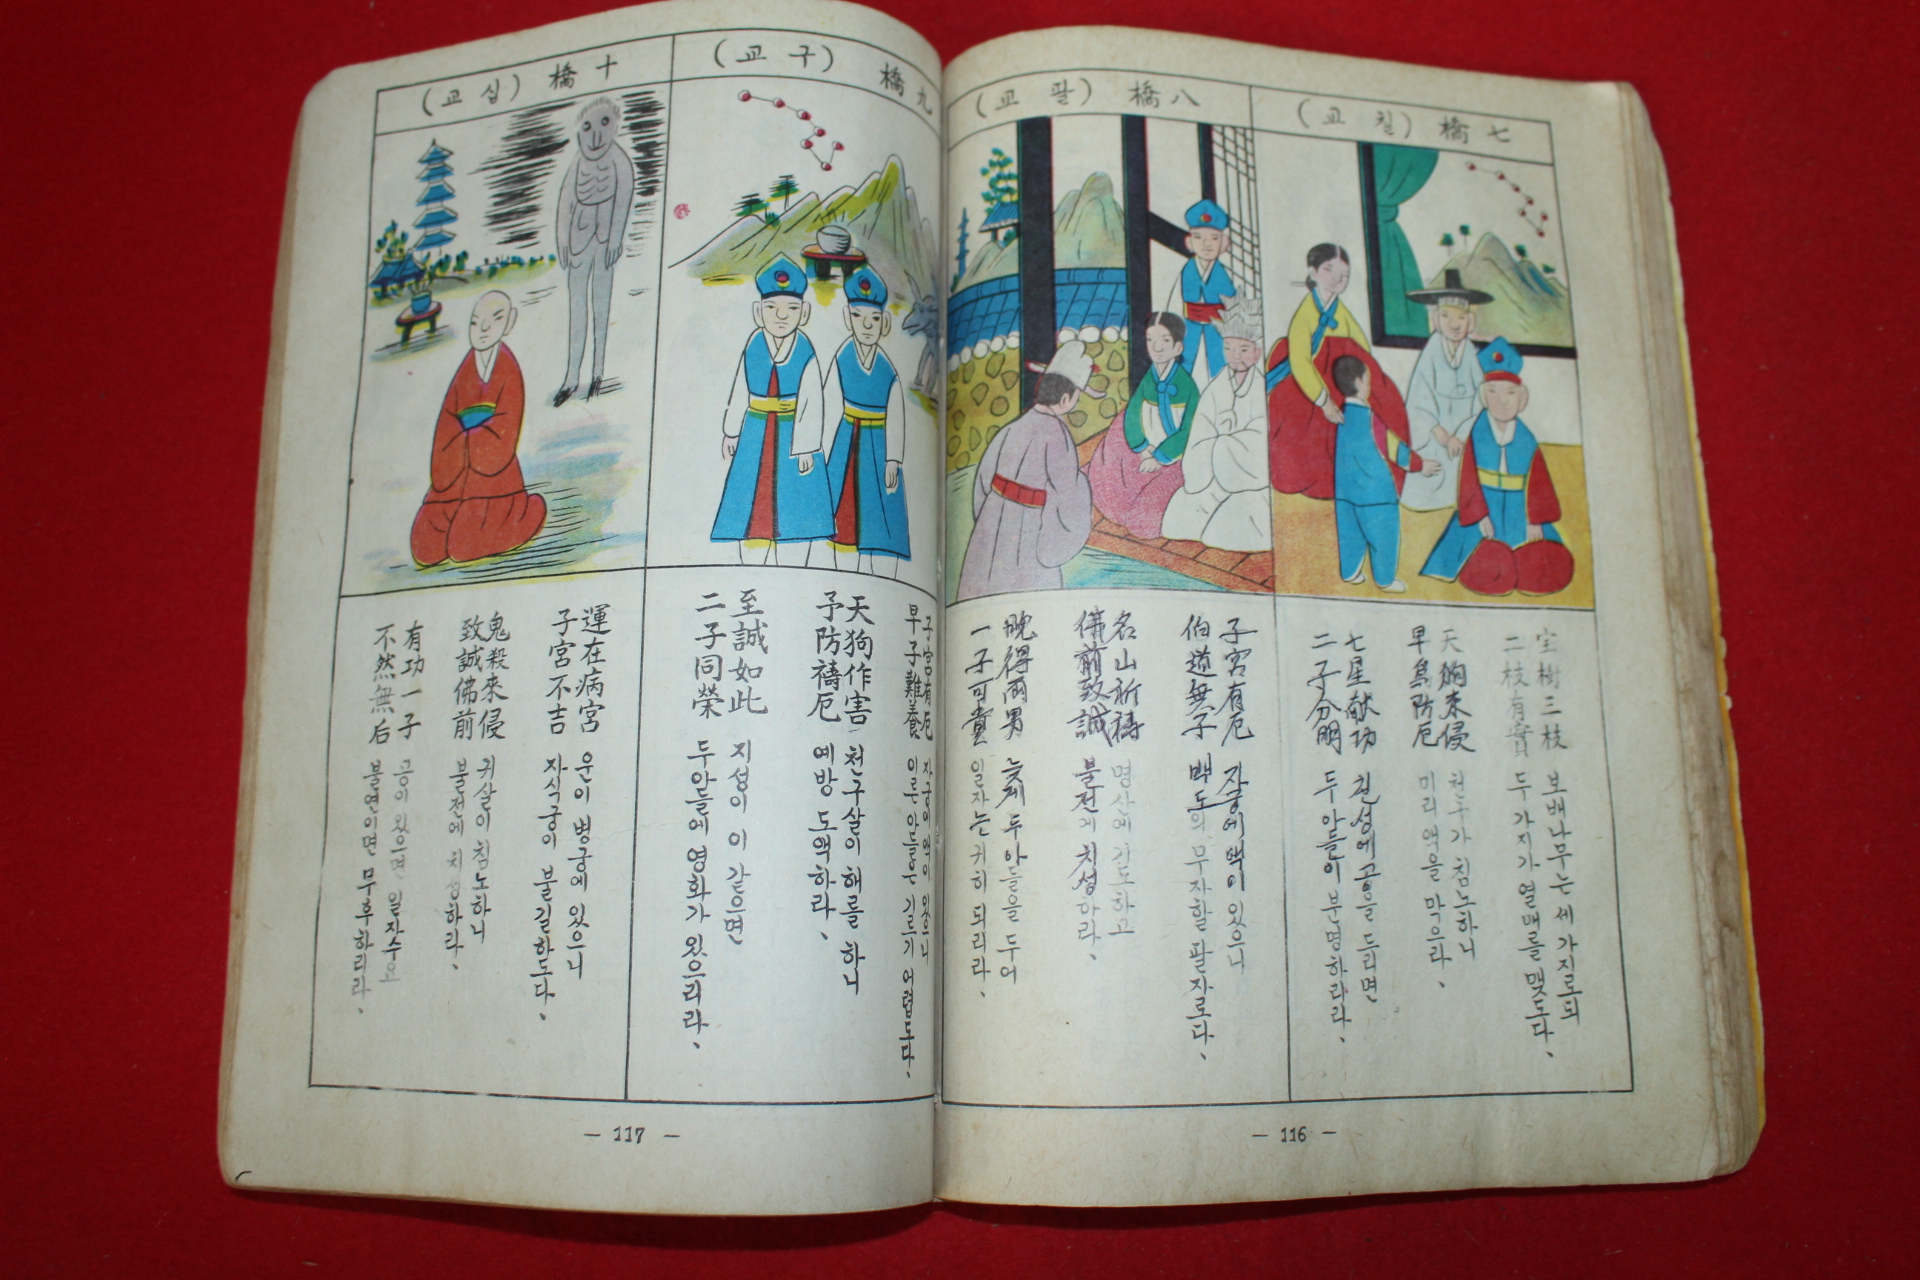 七橋 (교칠)
宝樹三枝
二枝有實
天狗来侵
早爲防厄
七星献功
二子分明
보배나무는 세 가지로되
두 가지가 열매를 맺도다、
천구가 침노하니
미리 액을 막으라、
칠성에 공을 드리면
두 아들이 분명하리라、
八橋 (교팔)
子宮有厄
伯道無子
名山祈禱
佛前致誠
晩得両男
一子可貴
자궁에 액이 있으니
백도의 무자할 팔자로다、
명산에 기도하고
불전에 치성하라、
늦게 두 아들을 두어
일자는 귀히 되리라、
— 116 —
九橋 (교구)
子宮有厄
早子難養
天狗作害
予防禱厄
至誠如此
二子同榮
자궁에 액이 있으니
이른 아들은 기르기 어렵도다、
천구살이 해를 하니
예방 도액하라、
지성이 이 같으면
두 아들에 영화가 있으리라、
十橋 (교십)
運在病宮
子宮不吉
鬼殺來侵
致誠佛前
有功一子
不然無后
운이 병궁에 있으니
자식궁이 불길하도다、
귀살이 침노하니
불전에 치성하라、
공이 있으면 일자수요
불연이면 무후하리라、
— 117 —